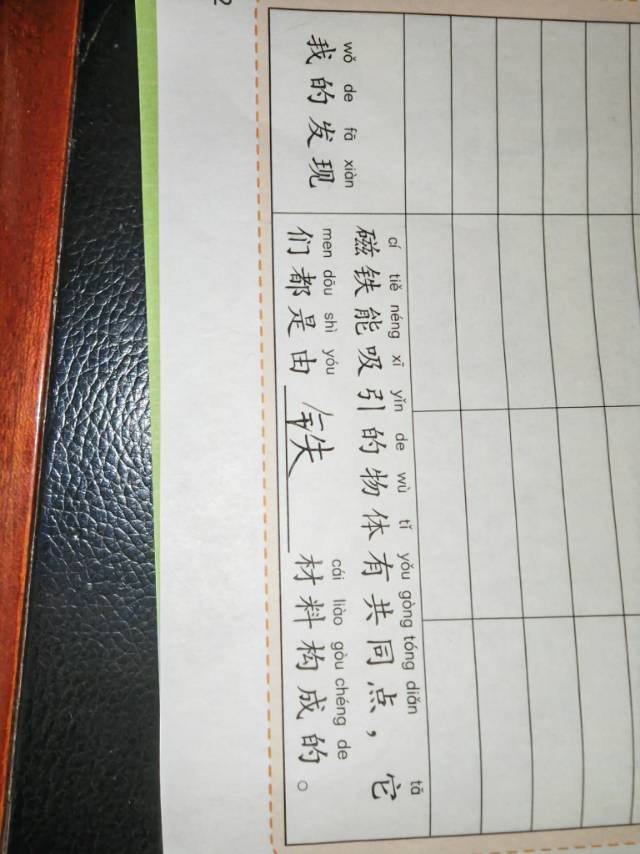 wǒ de fā xiàn
我的发现
cí tiě néng xī yǐn de wù tǐ yǒu gòng tóng diǎn tā
磁铁能吸引的物体有共同点，它
men dōu shì yóu cái liào gòu chéng de
们都是由铁材料构成的。
2